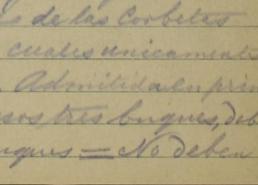 s de las Corbetas
cuales unicamente
Admitida en prin
esos tres buques, deb
uques = No deben